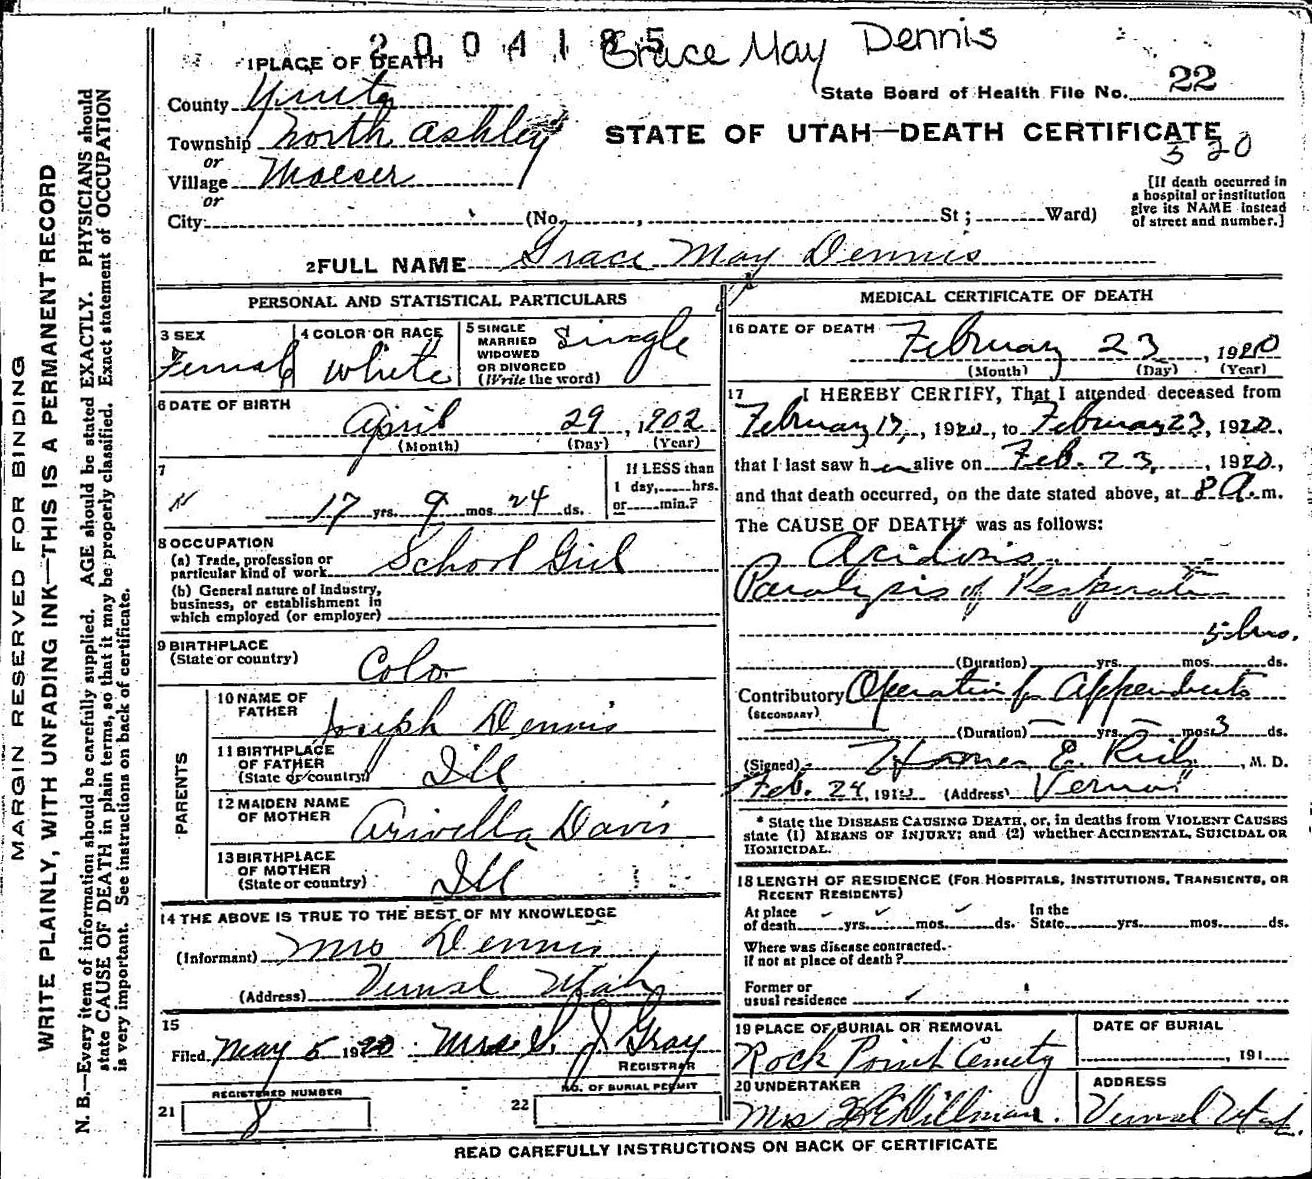 2004185 Grace May Dennis
1 PLACE OF DEATH
State Board of Health File No. 22
County
Township North Ashley
STATE OF UTAH—DEATH CERTIFICATE
320
or
Village Maeser
or
City (No. , St; Ward)
[If death occurred in
a hospital or institution
give its NAME instead
of street and number.]
2 FULL NAME Grace May Dennis
PERSONAL AND STATISTICAL PARTICULARS
3 SEX
Female
4 COLOR OR RACE
White
5 SINGLE
MARRIED
WIDOWED
OR DIVORCED
(Write the word)
Single
6 DATE OF BIRTH
April 29, 1902
(Month) (Day) (Year)
7
17 yrs. 9 mos. 24 ds.
If LESS than
1 day, hrs.
or min.?
8 OCCUPATION
(a) Trade, profession or
particular kind of work School Girl
(b) General nature of industry,
business, or establishment in
which employed (or employer)
9 BIRTHPLACE
(State or country)
Colo
PARENTS
10 NAME OF
FATHER
Joseph Dennis
11 BIRTHPLACE
OF FATHER
(State or country)
Ill
12 MAIDEN NAME
OF MOTHER
Arivella Davis
13 BIRTHPLACE
OF MOTHER
(State or country)
Ill
14 THE ABOVE IS TRUE TO THE BEST OF MY KNOWLEDGE
(Informant) Mrs Dennis
(Address) Vernal Utah
15
Filed May 5 1920 Mrs S. J. Gray
REGISTRAR
REGISTERED NUMBER
21 8
NO. OF BURIAL PERMIT
22
MEDICAL CERTIFICATE OF DEATH
16 DATE OF DEATH
February 23, 1920
(Month) (Day) (Year)
17 I HEREBY CERTIFY, That I attended deceased from
February 17, 1920, to February 23, 1920,
that I last saw her alive on Feb. 23, 1920,
and that death occurred, on the date stated above, at 8 A. m.
The CAUSE OF DEATH* was as follows:
Acidosis
Paralysis of Respiration
5 hrs.
(Duration) yrs. mos. ds.
Contributory Operation for Appendicitis
(SECONDARY)
(Duration) yrs. mos. 3 ds.
(Signed) Homer E. Rich, M. D.
Feb. 24, 191 (Address) Vernal
* State the DISEASE CAUSING DEATH, or, in deaths from VIOLENT CAUSES
state (1) MEANS OF INJURY; and (2) whether ACCIDENTAL, SUICIDAL OR
HOMICIDAL.
18 LENGTH OF RESIDENCE (FOR HOSPITALS, INSTITUTIONS, TRANSIENTS, OR
RECENT RESIDENTS)
At place
of death yrs. mos. ds.
In the
State yrs. mos. ds.
Where was disease contracted
if not at place of death?
Former or
usual residence
19 PLACE OF BURIAL OR REMOVAL
Rock Point Cemety
DATE OF BURIAL
, 191
20 UNDERTAKER
Mrs Dillman.
ADDRESS
Vernal Utah.
READ CAREFULLY INSTRUCTIONS ON BACK OF CERTIFICATE
MARGIN RESERVED FOR BINDING
WRITE PLAINLY, WITH UNFADING INK—THIS IS A PERMANENT RECORD
N. B.—Every item of information should be carefully supplied. AGE should be stated EXACTLY. PHYSICIANS should
state CAUSE OF DEATH in plain terms, so that it may be properly classified. Exact statement of OCCUPATION
is very important. See instructions on back of certificate.